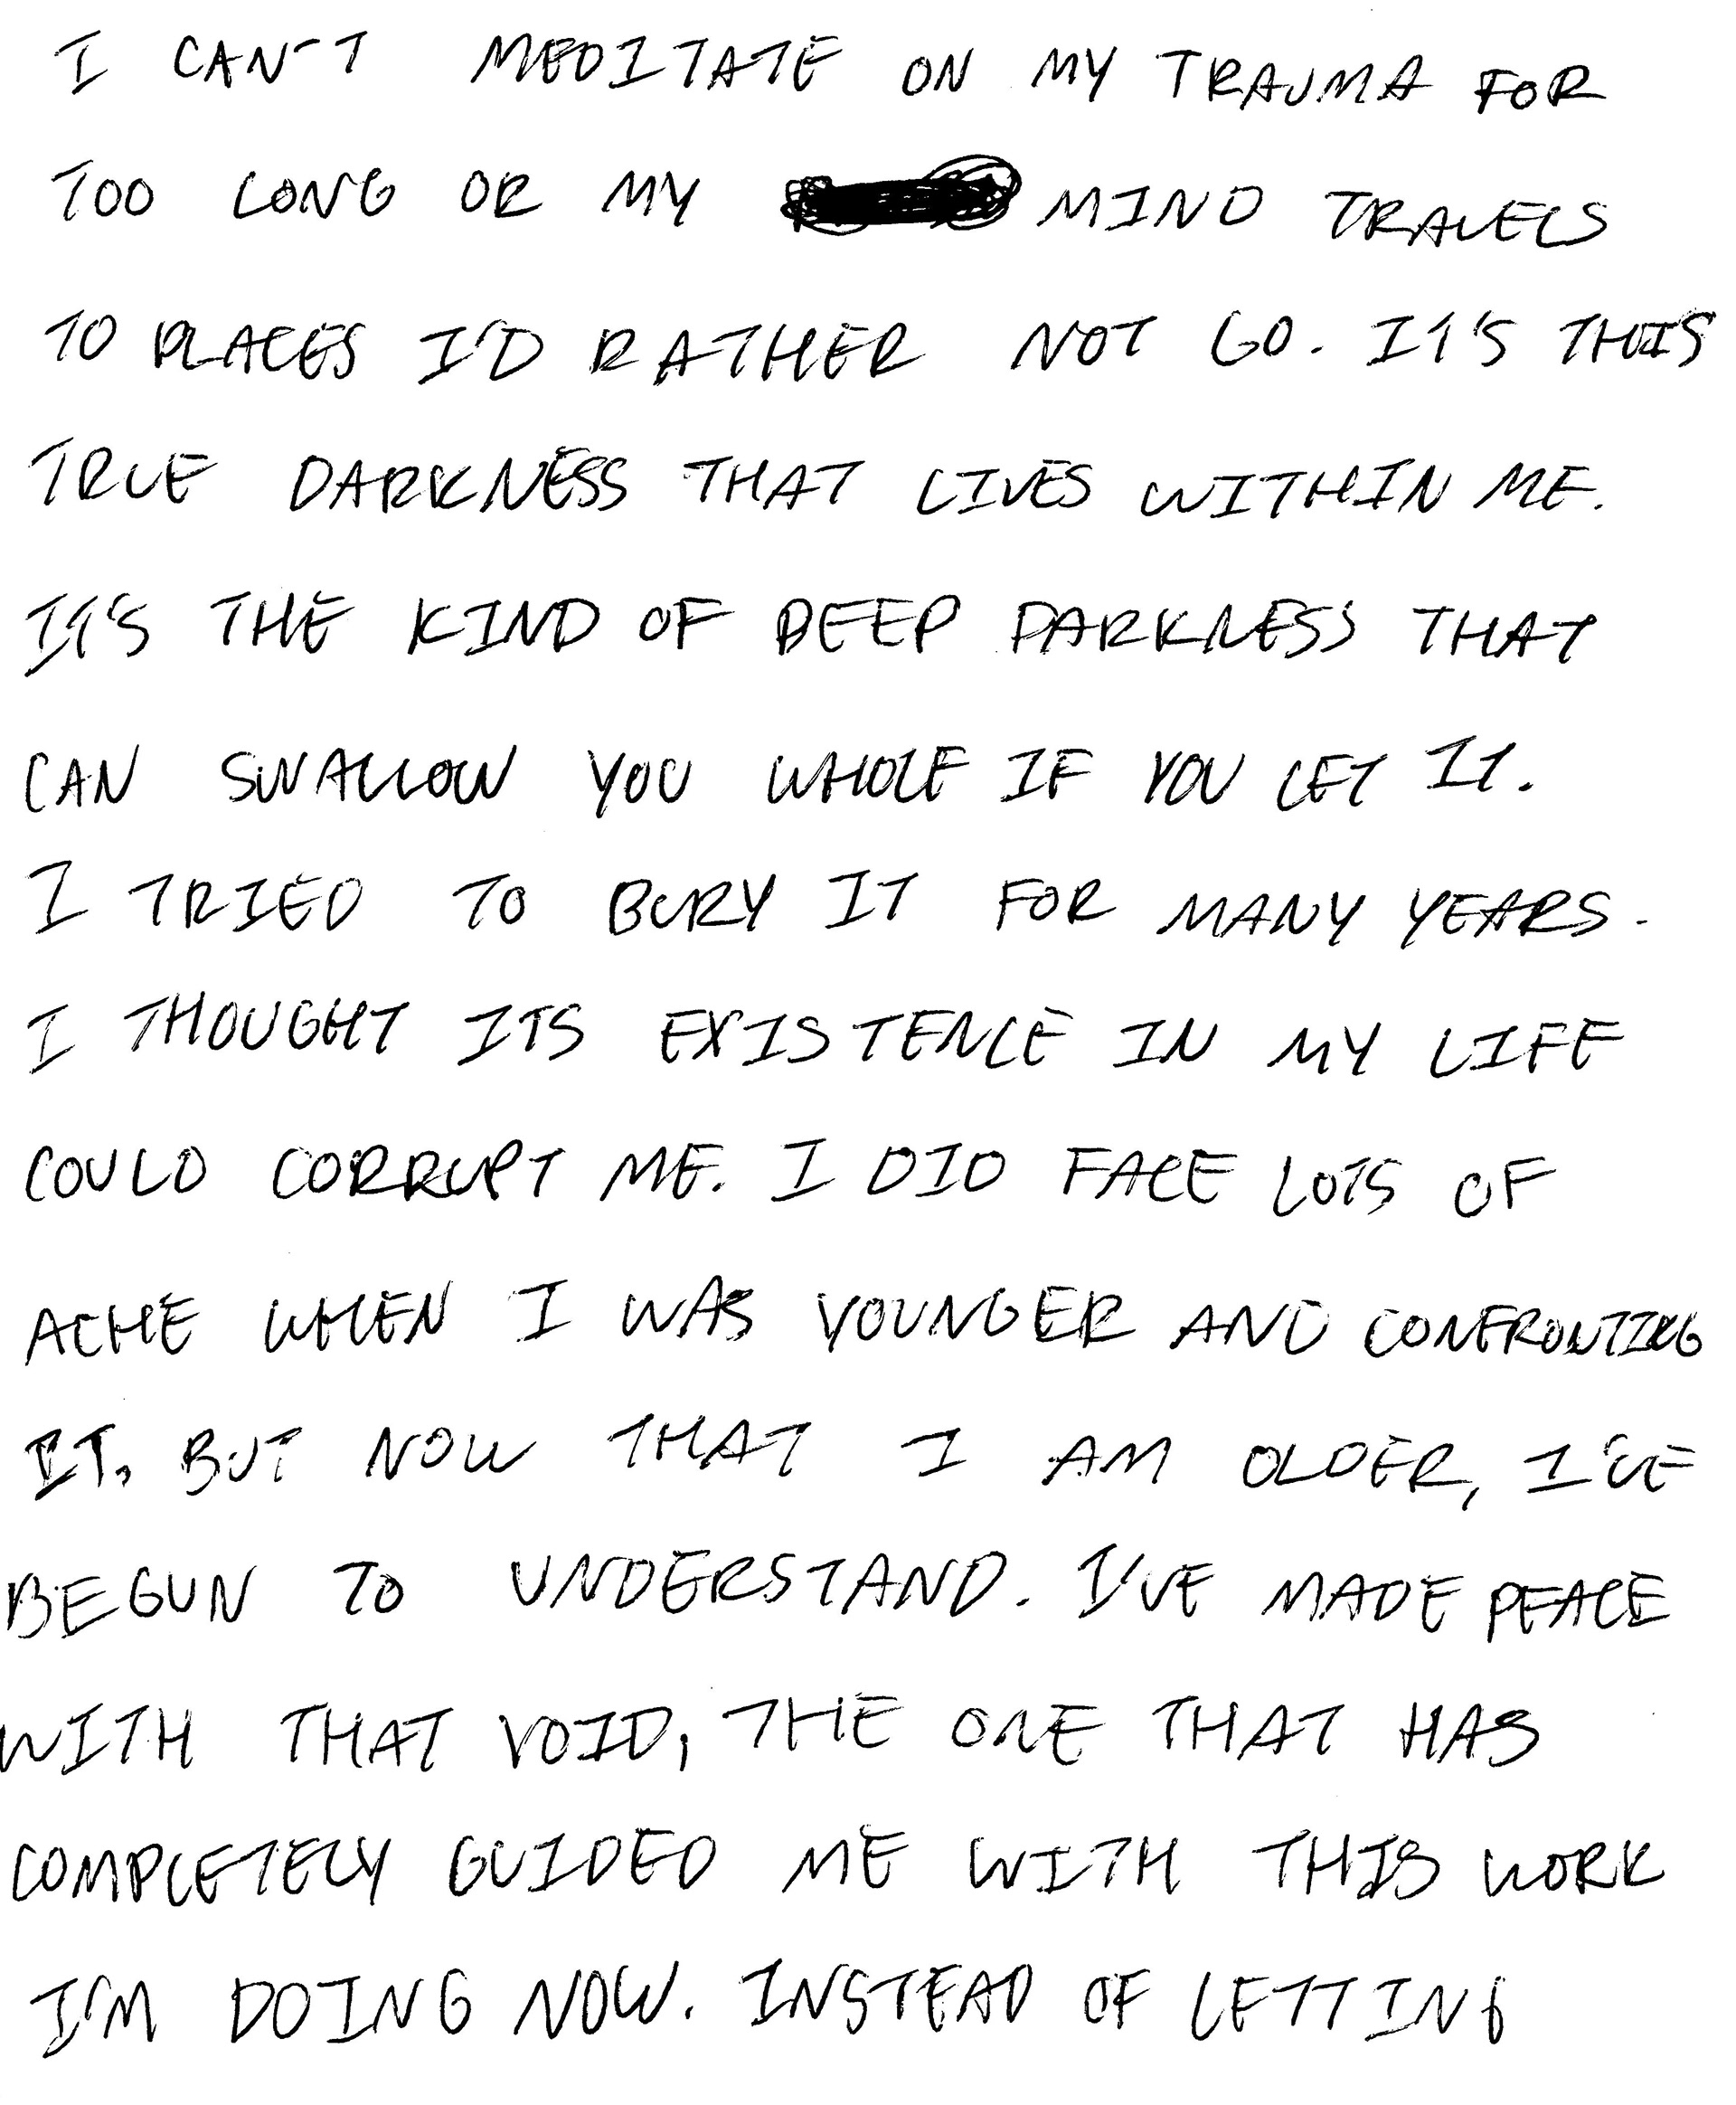 I CAN'T MEDITATE ON MY TRAUMA FOR
TOO LONG OR MY MIND TRAVELS
TO PLACES I'D RATHER NOT GO. IT'S THIS
TRUE DARKNESS THAT LIVES WITHIN ME.
IT'S THE KIND OF DEEP DARKNESS THAT
CAN SWALLOW YOU WHOLE IF YOU LET IT.
I TRIED TO BURY IT FOR MANY YEARS.
I THOUGHT ITS EXISTENCE IN MY LIFE
COULD CORRUPT ME. I DID FACE LOTS OF
ACHE WHEN I WAS YOUNGER AND CONFRONTING
IT, BUT NOW THAT I AM OLDER, I'VE
BEGUN TO UNDERSTAND. I'VE MADE PEACE
WITH THAT VOID, THE ONE THAT HAS
COMPLETELY GUIDED ME WITH THIS WORK
I'M DOING NOW. INSTEAD OF LETTING